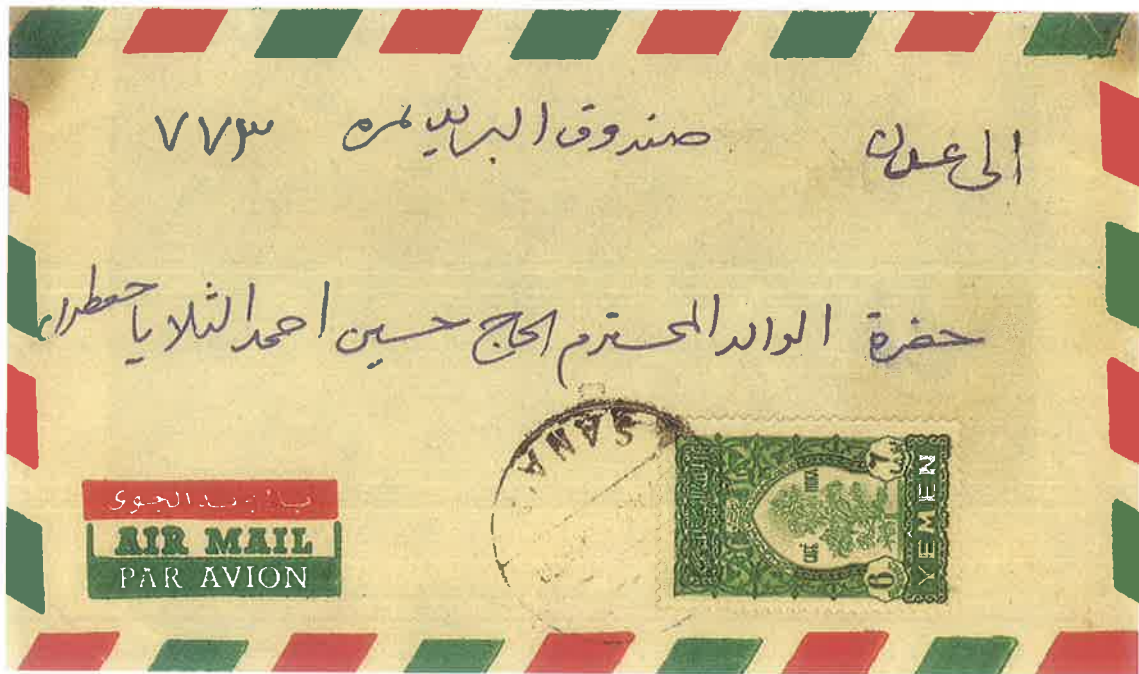 الى عدن صندوق البريد نمره ٧٧٣
حضرة الوالد المحترم الحاج حسين احمد الثلايا
SANA'A
بالبريد الجوى
AIR MAIL
PAR AVION
YEMEN
CAFÉ MOKA
6